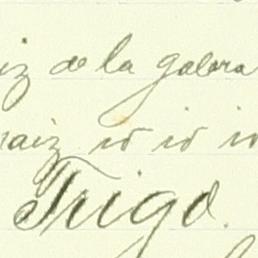 iz de la galera
raiz id id id
Trigo.